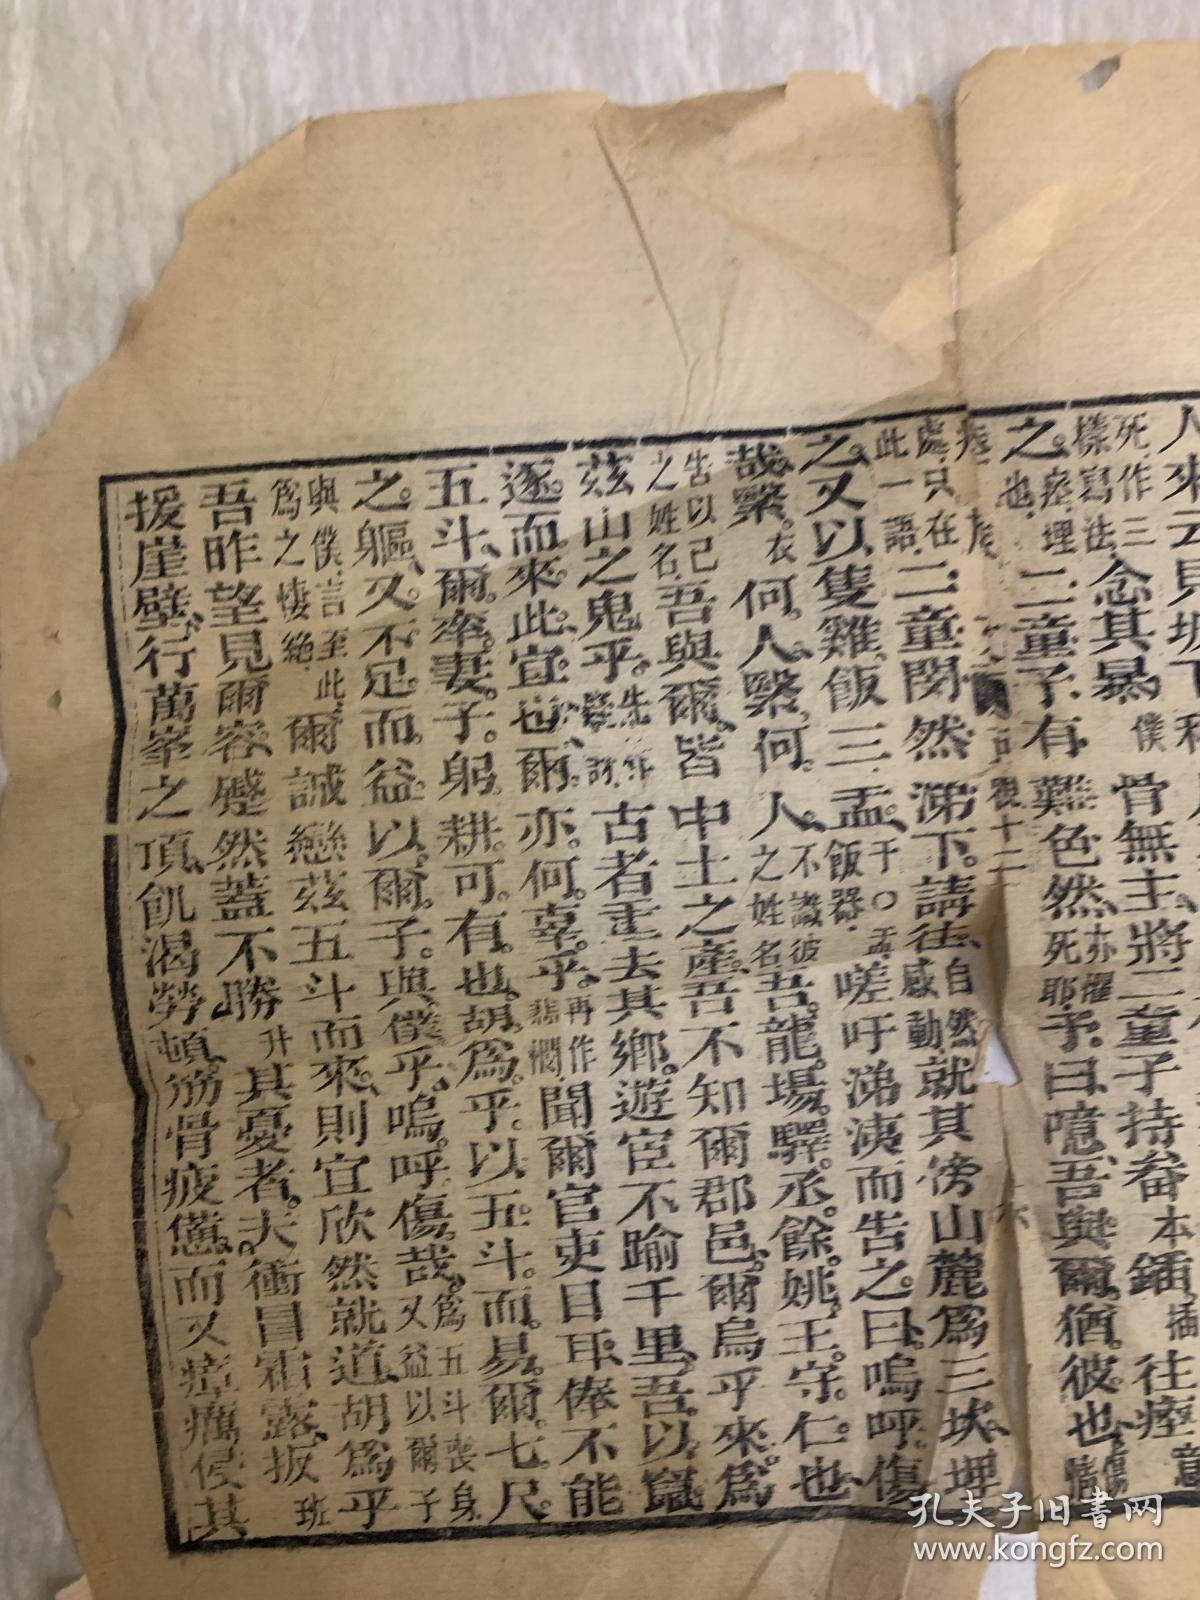 人來云見坡下
死、作三樣寫法、念其暴骨無主、將二童子持畚本鍤、插往瘞意
之。瘞、埋也、二童子有難色然、亦懼死耶、予曰、噫、吾與爾猶彼也、傷情
處、只在此一語、二童閔然涕下、請往、自然感動、就其傍山麓爲三坎、埋
之、又以隻雞飯三盂、于〇盂、飯器、嗟吁涕洟而告之曰、嗚呼傷
哉、繄。衣何。人、繄、何。人。不識彼之姓名吾。龍。場。驛。丞。餘。姚。王。守。仁。也
告以己之姓名、吾與爾、皆中土之產、吾不知爾郡邑、爾烏乎來。爲
茲山之鬼乎。古者重去其鄉、遊宦不踰千里、吾以竄
逐。而來此、宜也、爾、亦何。辜。乎。再作悲憫、聞爾官吏目耳、俸不能
五斗、爾率。妻。子。躬。耕。可。有。也。胡。爲。乎。以。五。斗。而。易。爾。七。尺。
之。軀、又。不。足。而。益。以。爾。子。與僕乎、嗚。呼。傷。哉。爲五斗喪身、又益以爾子
與僕、言至此、爲之悽絶、爾誠戀茲五斗而來、則宜欣然就道、胡爲乎
吾昨望見爾容蹙然、蓋不勝升其憂者。夫衝冒霜露、扳班
援崖壁、行萬峯之頂、飢渴勞頓、筋骨疲憊。而又瘴癘侵其
孔夫子旧書网
www.kongfz.com